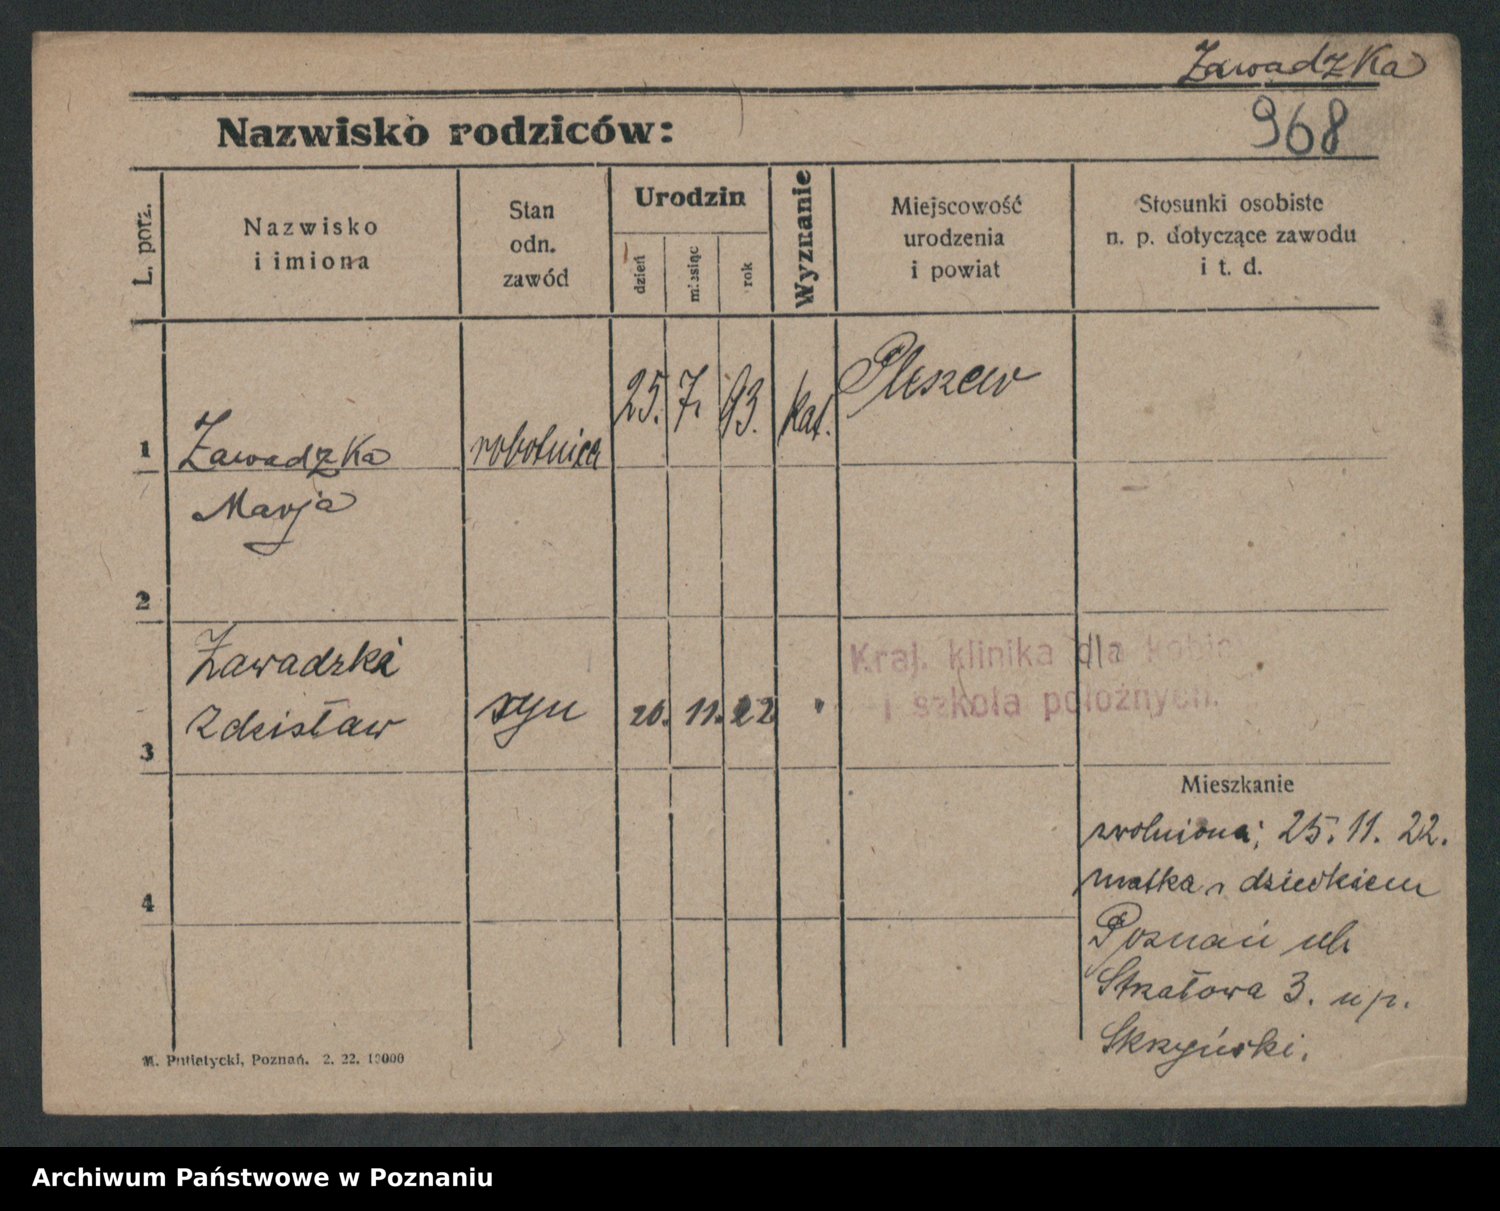 Zawadzka
968
Nazwisko rodziców:
L. porz.
Nazwisko
i imiona
Stan
odn.
zawód
Urodzin
dzień
miesiąc
rok
Wyznanie
Miejscowość
urodzenia
i powiat
Stosunki osobiste
n. p. dotyczące zawodu
i t. d.
1
Zawadzka
robotnica
25. 7. 93.
kat.
Pleszew
Marja
2
Zawadzki
Zdzisław
syn
20. 11. 22
"
Kraj. klinika dla kobiet
i szkoła położnych.
3
Mieszkanie
zwolniona; 25. 11. 22.
matka z dzieckiem
Poznań ul.
Strzałowa 3. u p.
Skrzyński.
4
M. Putiatycki, Poznań. 2. 22. 10000
Archiwum Państwowe w Poznaniu